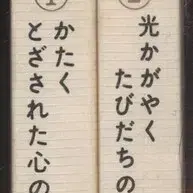 ①
かたく
とざされた心の
②
光かがやく
たびだちの